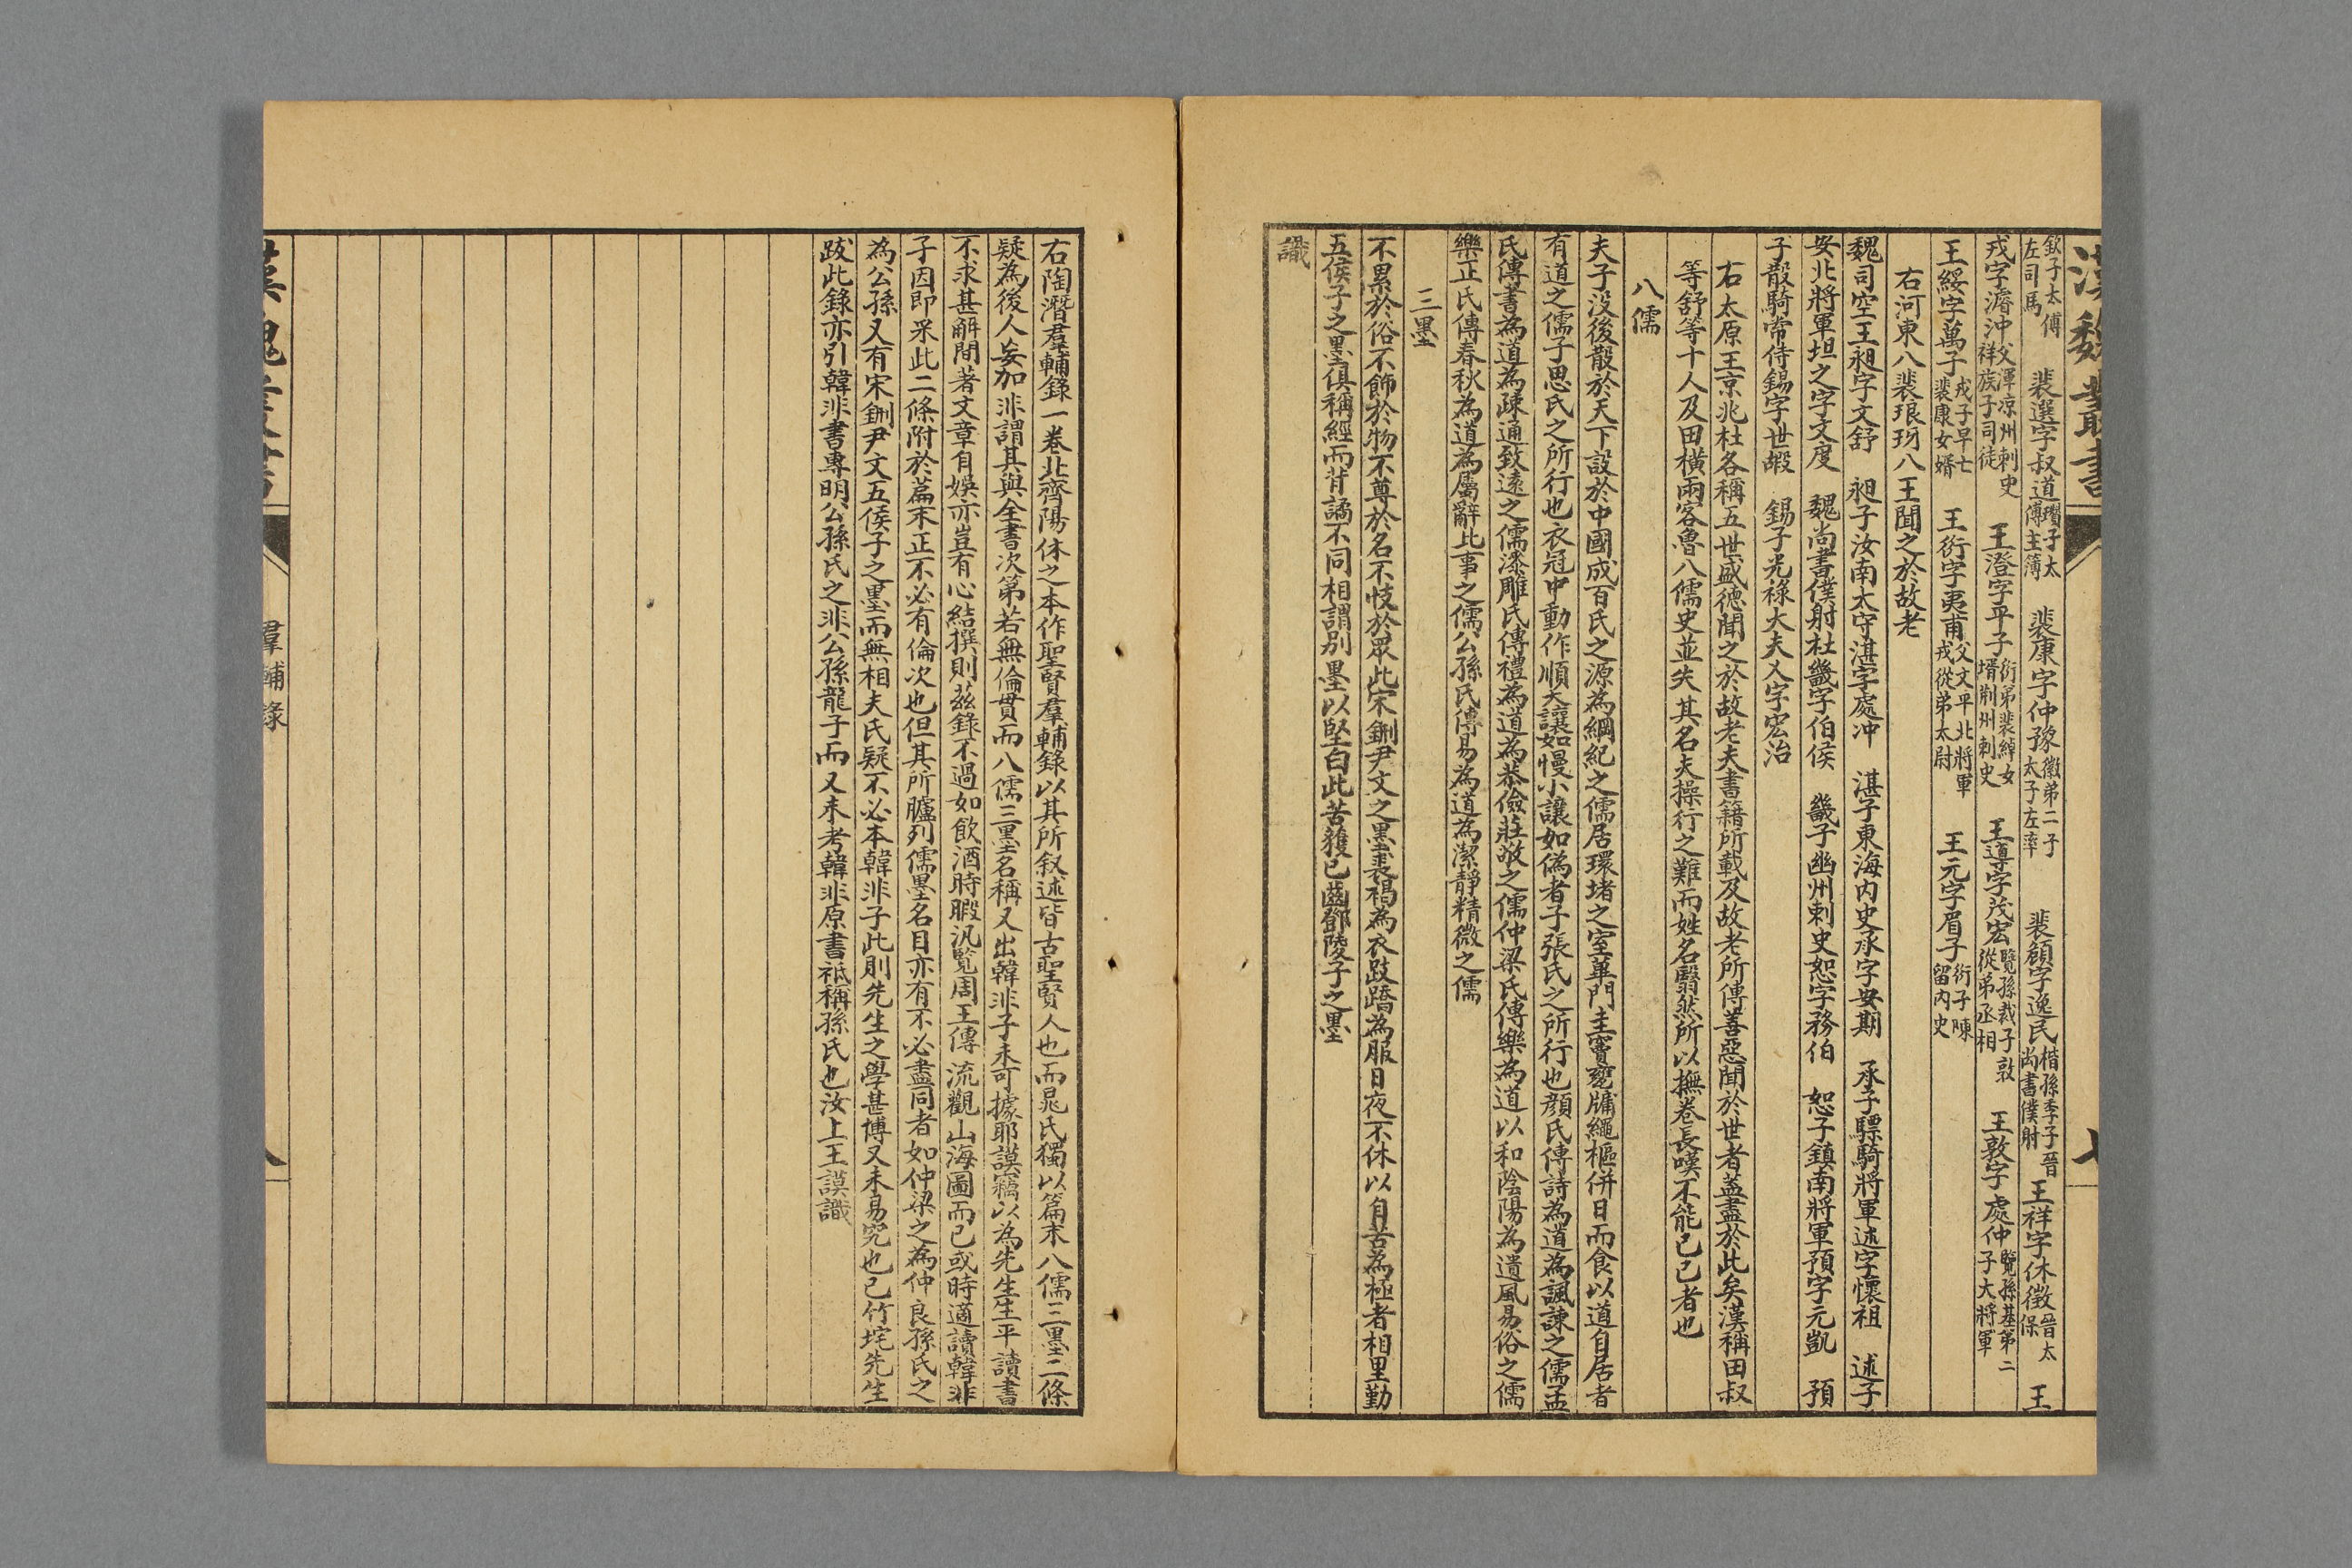 漢魏叢書
欽子太傅左司馬 裴選字叔道瓚子太傅主簿 裴康字仲豫徽弟二子太子左率 裴頠字逸民楷孫季子晉尚書僕射 王祥字休徵晉太保 王
戎字濬沖父渾凉州刺史祥族子司徒 王澄字平子衍弟裴綽女壻荆州刺史 王導字茂宏覽孫裁子敦從弟丞相 王敦字處仲覽孫基第二子大將軍
王綏字萬子戎子早亡裴康女婿 王衍字夷甫父文平北將軍戎從弟太尉 王元字眉子衍子陳留內史
右河東八裴琅玡八王聞之於故老
魏司空王昶字文舒 昶子汝南太守湛字處冲 湛子東海內史承字安期 承子驃騎將軍述字懷祖 述子
安北將軍坦之字文度 魏尚書僕射杜畿字伯侯 畿子幽州刺史恕字務伯 恕子鎮南將軍預字元凱 預
子散騎常侍錫字世嘏 錫子光祿大夫乂字宏治
右太原王京兆杜各稱五世盛德聞之於故老夫書籍所載及故老所傳善惡聞於世者蓋盡於此矣漢稱田叔
等舒等十人及田橫兩客魯八儒史並失其名夫操行之難而姓名翳然所以撫卷長嘆不能已已者也
八儒
夫子没後散於天下設於中國成百氏之源為綱紀之儒居環堵之室蓽門圭竇甕牖繩樞併日而食以道自居者
有道之儒子思氏之所行也衣冠中動作順大讓如慢小讓如偽者子張氏之所行也顏氏傳詩為道為諷諫之儒孟
氏傳書為道為疎通致遠之儒漆雕氏傳禮為道為恭儉莊敬之儒仲梁氏傳樂為道以和陰陽為遺風易俗之儒
樂正氏傳春秋為道為屬辭比事之儒公孫氏傳易為道為潔靜精微之儒
三墨
不累於俗不飾於物不尊於名不忮於眾此宋鉶尹文之墨裘褐為衣跂蹻為服日夜不休以自苦為極者相里勤
五侯子之墨俱稱經而背譎不同相謂別墨以堅白此苦獲已齒鄧陵子之墨
識
右陶潛羣輔錄一卷北齊陽休之本作聖賢羣輔錄以其所叙述皆古聖賢人也而晁氏獨以篇末八儒三墨二條
疑為後人妄加非謂其與全書次第若無倫貫而八儒三墨名稱又出韓非子未可據耶謨竊以為先生生平讀書
不求甚解間著文章自娛亦豈有心結撰則茲錄不過如飲酒時暇汎覧周王傳流觀山海圖而已或時適讀韓非
子因即采此二條附於篇末正不必有倫次也但其所臚列儒墨名目亦有不必盡同者如仲梁之為仲良孫氏之
為公孫又有宋鉶尹文五侯子之墨而無相夫氏疑不必本韓非子此則先生之學甚博又未易究也已竹垞先生
跋此錄亦引韓非書專明公孫氏之非公孫龍子而又未考韓非原書祗稱孫氏也汝上王謨識
漢魏叢書
羣輔錄
八